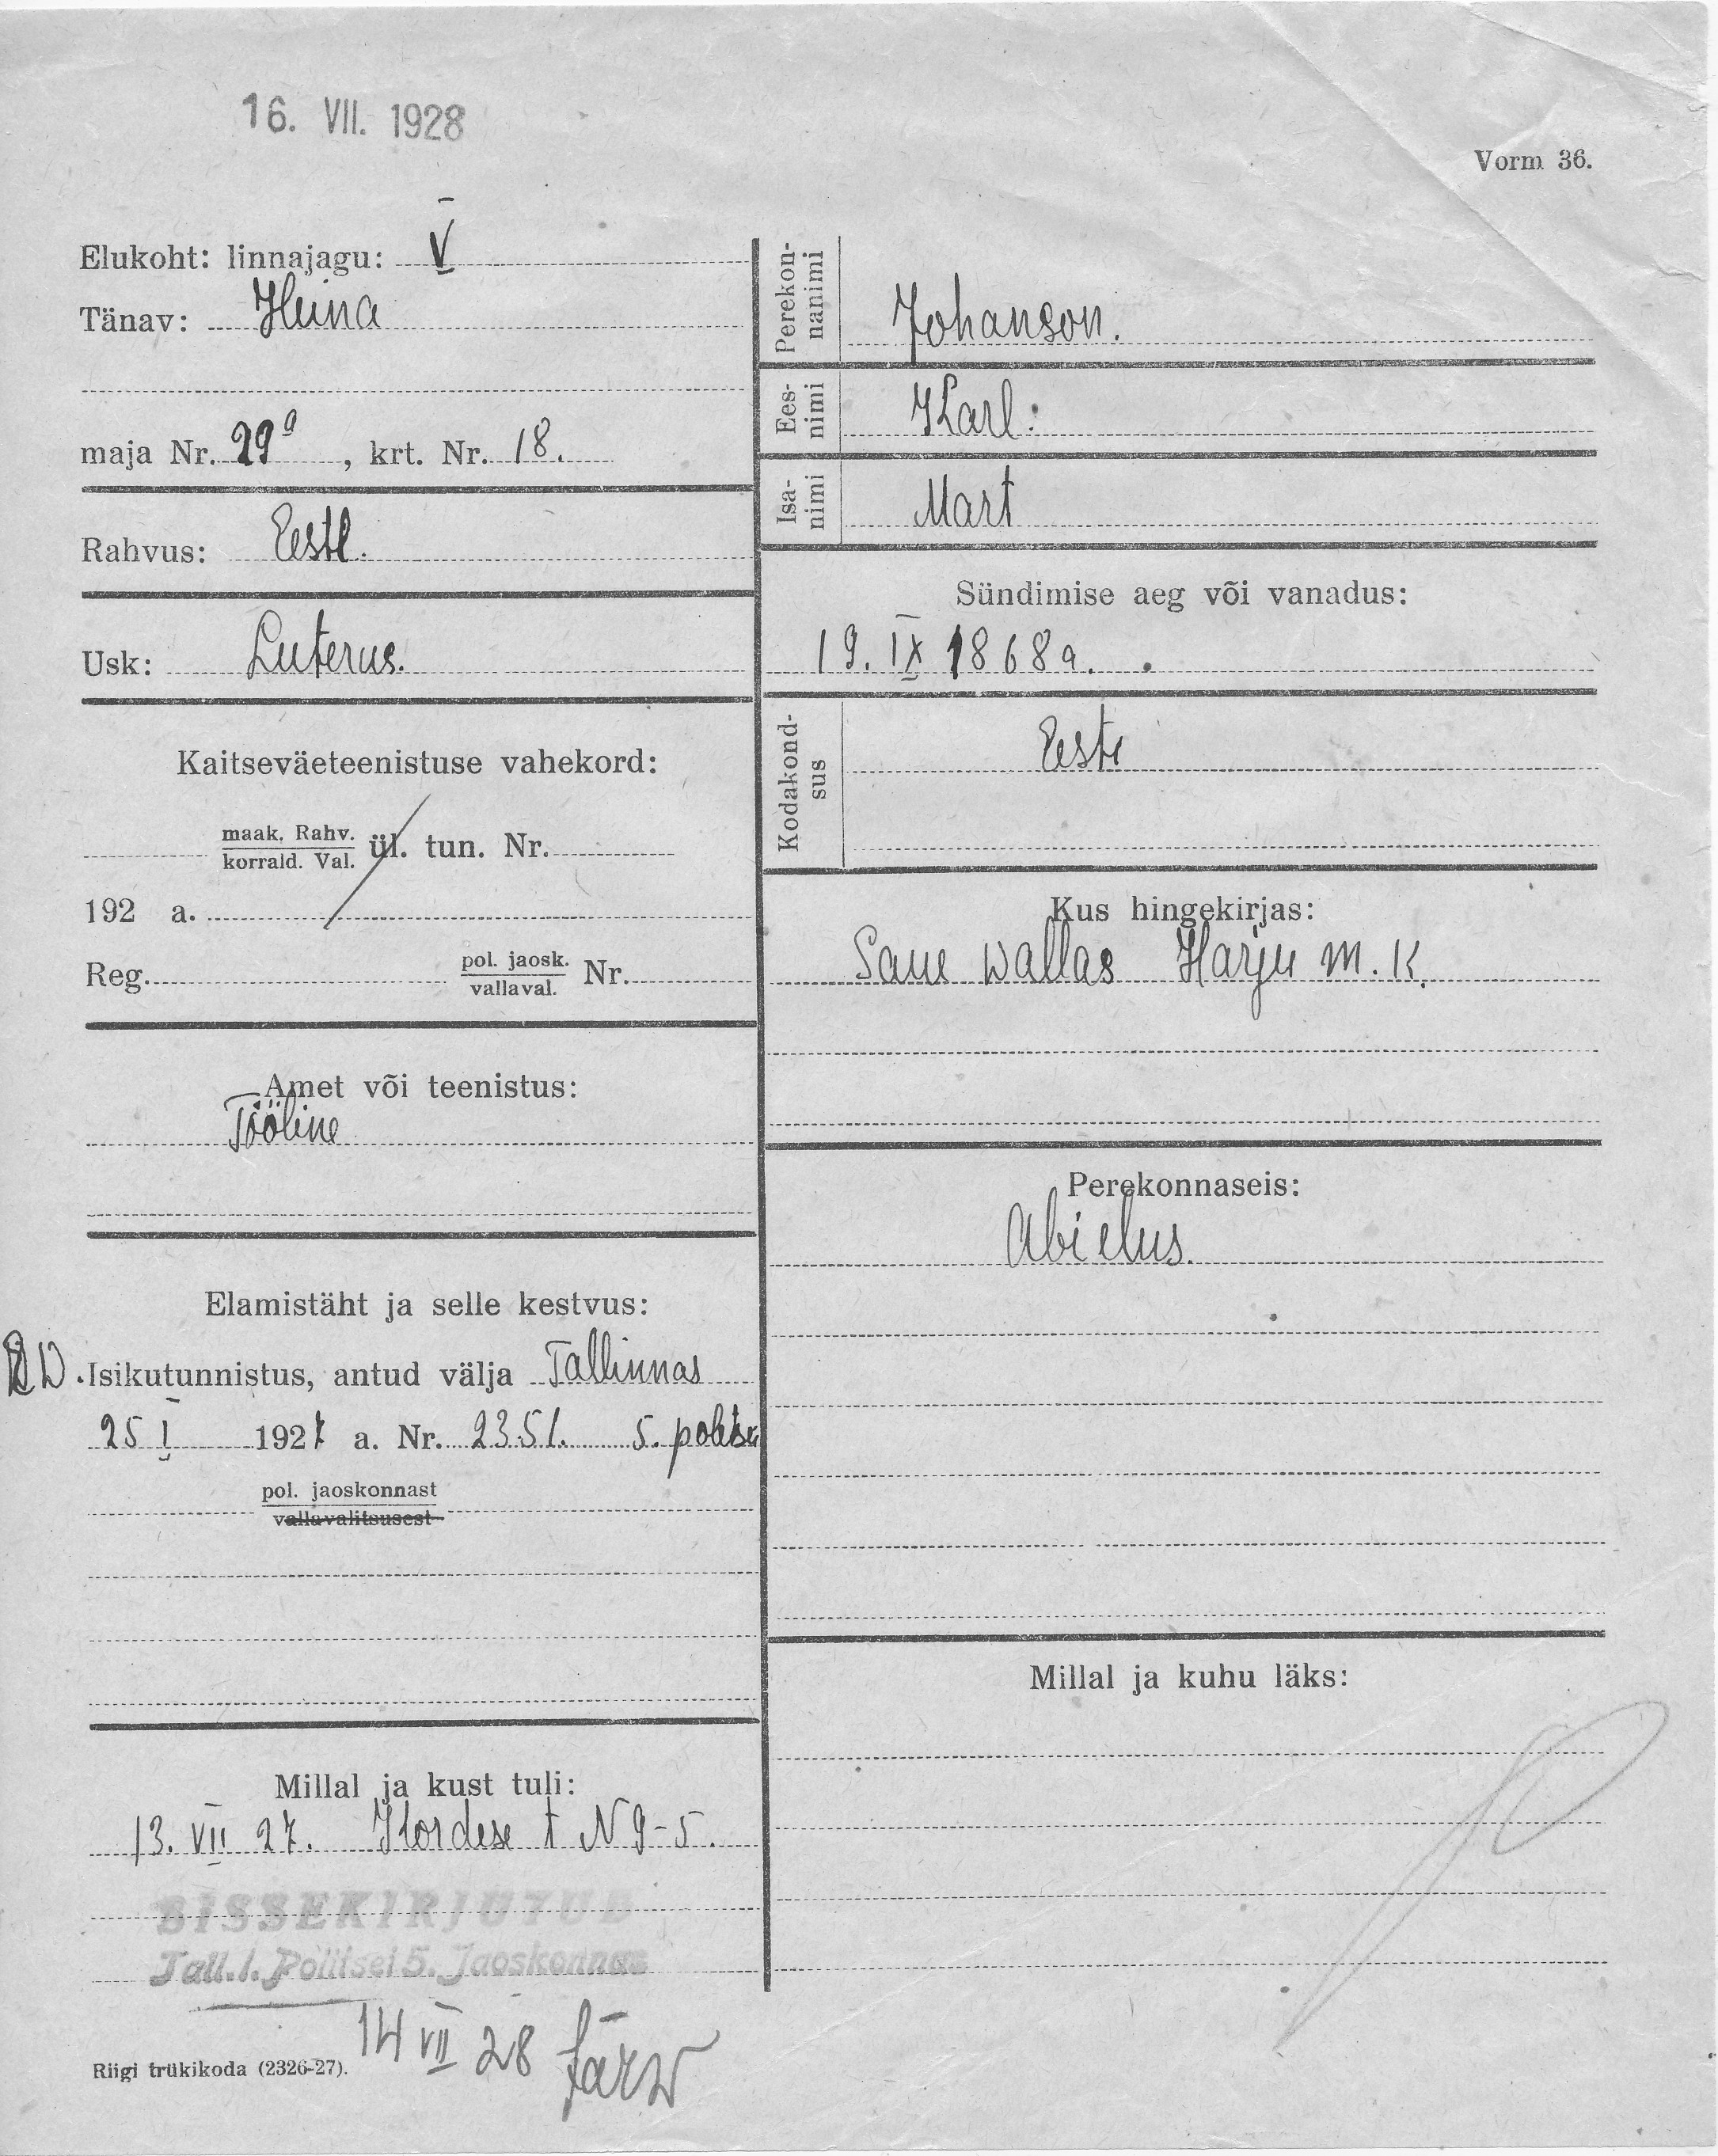 16. VII. 1928
Vorm 36.
Elukoht: linnajagu: V
Tänav: Heina
maja Nr. 29a, krt. Nr. 18.
Rahvus: Eestl.
Usk: Luterus.
Kaitseväeteenistuse vahekord:
maak. Rahv.
korrald. Val. ül. tun. Nr.
192 a.
Reg. pol. jaosk. Nr.
vallaval.
Amet või teenistus:
Tööline
Elamistäht ja selle kestvus:
Isikutunnistus, antud välja Tallinnas
25 I 1927 a. Nr. 2351. 5. politsei
pol. jaoskonnast
vallavalitsusest
Millal ja kust tuli:
13. VII 27. Kordese t N 9-5.
SISSEKIRJUTUD
Tall. l. Politsei 5. Jaoskonnas
14 VII 28 Järw
Riigi trükikoda (2326-27).
Perekon-
nanimi
Johanson.
Ees-
nimi
Karl:
Isa-
nimi
Mart
Sündimise aeg või vanadus:
19. IX 1868 a.
Kodakond-
sus
Eesti
Kus hingekirjas:
Saue wallas Harju m. k.
Perekonnaseis:
Abielus.
Millal ja kuhu läks: